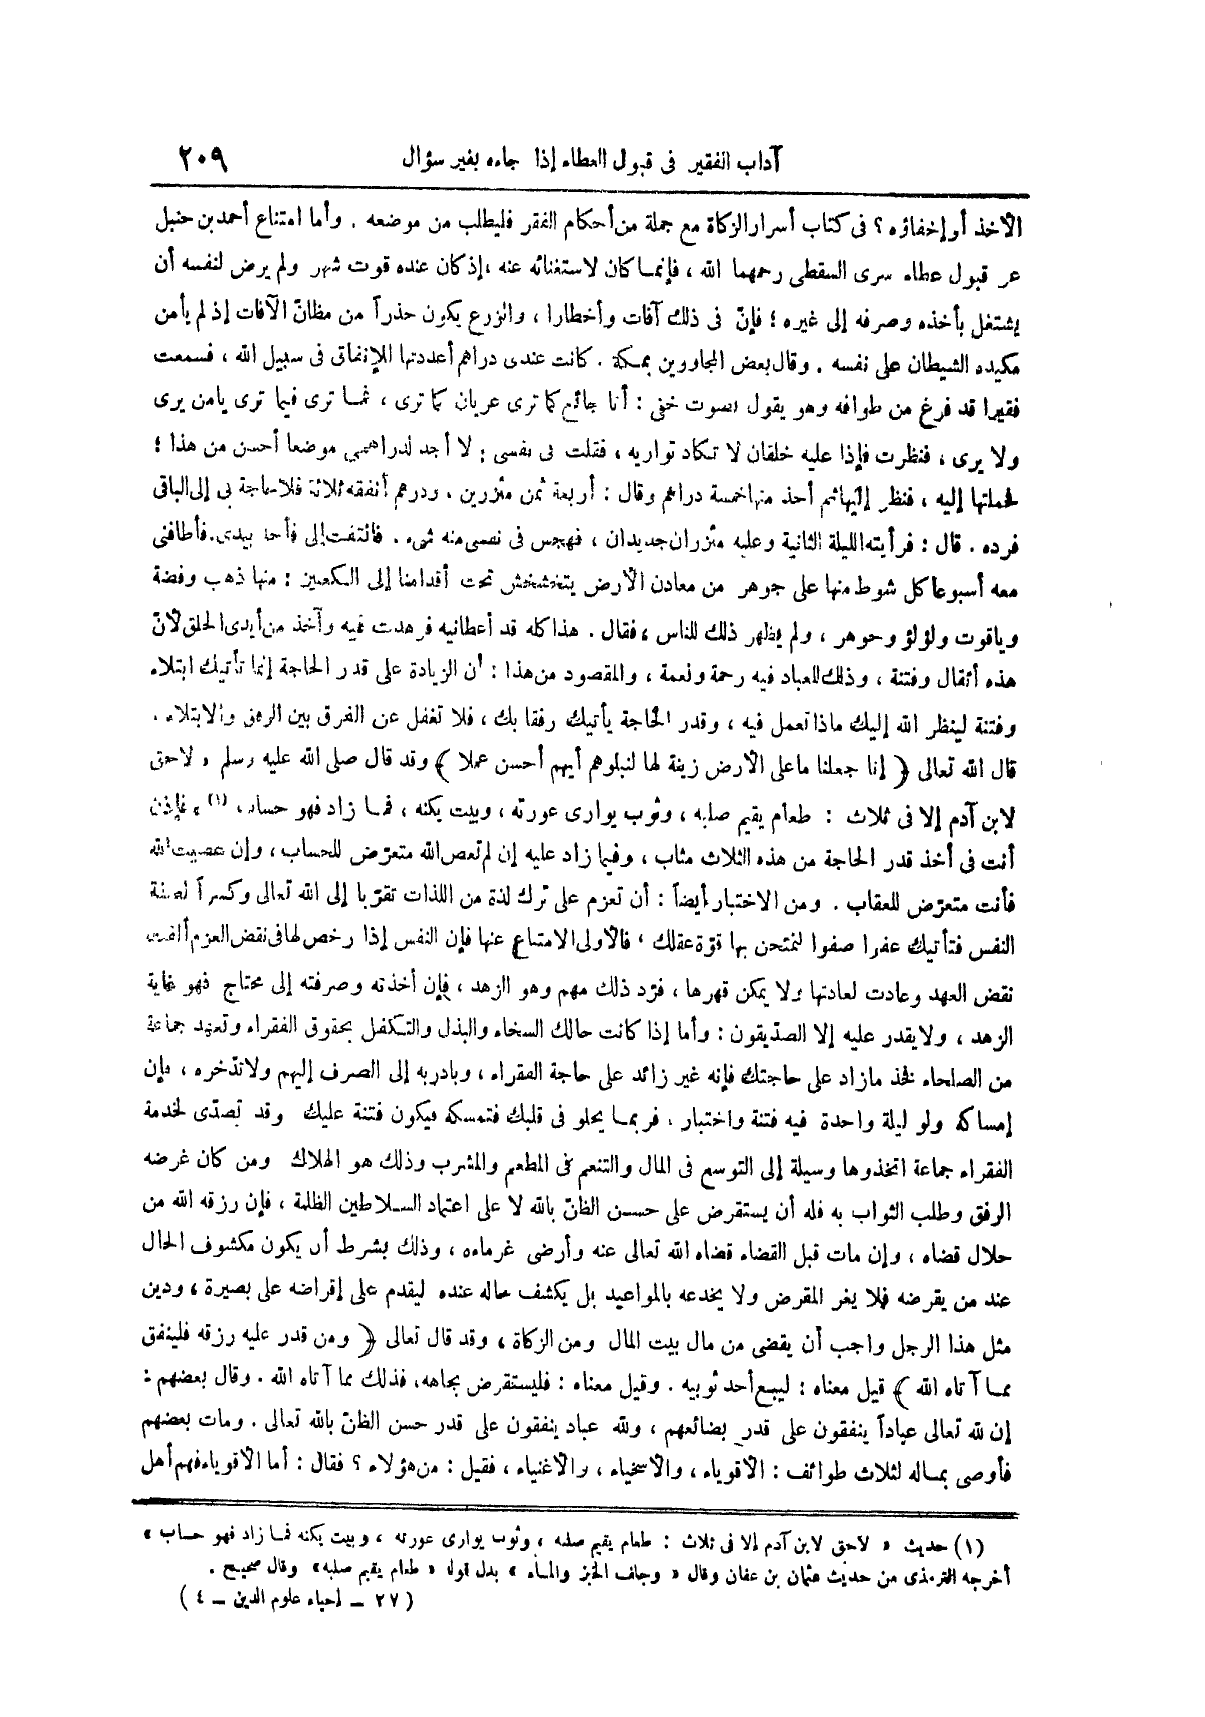 آداب الفقير فى قبول العطاء إذا جاءه بغير سؤال ٢٠٩
الأخذ أو إخفاؤه ؟ فى كتاب أسرار الزكاة مع جملة من أحكام الفقر فليطلب من موضعه . وأما امتناع أحمد بن حنبل
عن قبول عطاء سرى السقطى رحمهما الله ، فإنما كان لاستغنائه عنه ، إذ كان عنده قوت شهر ولم يرض لنفسه أن
يشتغل بأخذه وصرفه إلى غيره ؛ فإنّ فى ذلك آفات وأخطارا ، والورع يكون حذراً من مظانّ الآفات إذ لم يأمن
مكيده الشيطان على نفسه . وقال بعض المجاورين بمكة . كانت عندى دراهم أعددتها للإنفاق فى سبيل الله ، فسمعت
فقيرا قد فرغ من طوافه وهو يقول بصوت خفى : أنا جائع كما ترى عريان كما ترى ، فما ترى فيما ترى يامن يرى
ولا يرى ، فنظرت فإذا عليه خلقان لا تكاد تواريه ، فقلت فى نفسى : لا أجد لدراهمى موضعا أحسن من هذا ؛
فحملتها إليه ، فنظر إليها ثم أخذ منها خمسة دراهم وقال : أربعة ثمن مئزرين . ودرهم أنفقه ثلاثة فلا حاجة بى إلى الباقى
فرده . قال : فرأيته الليلة الثانية وعليه مئزران جديدان ، فهجس فى نفسى منه شىء . فالتفت إلى فأخذ بيدى . فأطافنى
معه أسبوعا كل شوط منها على جوهر من معادن الأرض يتخشخش تحت أقدامنا إلى الكعبين : منها ذهب وفضة
وياقوت ولؤلؤ وجوهر ، ولم يظهر ذلك للناس ، فقال . هذا كله قد أعطانيه فزهدت فيه وآخذ من أيدى الخلق لأنّ
هذه أثقال وفتنة ، وذلك للعباد فيه رحمة ونعمة ، والمقصود من هذا : أن الزيادة على قدر الحاجة إنما تأتيك ابتلاء
وفتنة لينظر الله إليك ماذا تعمل فيه ، وقدر الحاجة يأتيك رفقا بك ، فلا تغفل عن الفرق بين الرفق والابتلاء .
قال الله تعالى ﴿ إنا جعلنا ما على الأرض زينة لها لنبلوهم أيهم أحسن عملا ﴾ وقد قال صلى الله عليه وسلم « لا حق
لابن آدم إلا فى ثلاث : طعام يقيم صلبه ، وثوب يوارى عورته ، وبيت يكنه ، فما زاد فهو حساب (١) » فإذن
أنت فى أخذ قدر الحاجة من هذه الثلاث مثاب ، وفيما زاد عليه إن لم تعص الله متعرّض للحساب ، وإن عصيت الله
فأنت متعرّض للعقاب . ومن الاختبار أيضاً : أن تعزم على ترك لذة من اللذات تقرّبا إلى الله تعالى وكسراً لصفة
النفس فتأتيك عفوا صفوا لتمتحن بها قوّة عقلك ، فالأولى الامتناع عنها فإن النفس إذا رخص لها فى نقض العزم ألفت
نقض العهد وعادت لعادتها ولا يمكن قهرها ، فردّ ذلك مهم وهو الزهد ، فإن أخذته وصرفته إلى محتاج فهو غاية
الزهد ، ولا يقدر عليه إلا الصدّيقون : وأما إذا كانت حالك السخاء والبذل والتكفل بحقوق الفقراء وتعهد جماعة
من الصلحاء فخذ مازاد على حاجتك فإنه غير زائد على حاجة الفقراء ، وبادر به إلى الصرف إليهم ولا تدّخره ، فإن
إمساكه ولو ليلة واحدة فيه فتنة واختبار ، فربما يحلو فى قلبك فتمسكه فيكون فتنة عليك وقد تصدّى لخدمة
الفقراء جماعة اتخذوها وسيلة إلى التوسع فى المال والتنعم فى المطعم والمشرب وذلك هو الهلاك ومن كان غرضه
الرفق وطلب الثواب به فله أن يستقرض على حسن الظنّ بالله لا على اعتماد السلاطين الظلمة ، فإن رزقه الله من
حلال قضاه ، وإن مات قبل القضاء قضاه الله تعالى عنه وأرضى غرماءه ، وذلك بشرط أن يكون مكشوف الحال
عند من يقرضه فلا يغر المقرض ولا يخدعه بالمواعيد بل يكشف حاله عنده ليقدم على إقراضه على بصيرة ، ودين
مثل هذا الرجل واجب أن يقضى من مال بيت المال ومن الزكاة ، وقد قال تعالى ﴿ ومن قدر عليه رزقه فلينفق
مما آتاه الله ﴾ قيل معناه : ليبع أحد ثوبيه . وقيل معناه : فليستقرض بجاهه ، فذلك مما آتاه الله . وقال بعضهم :
إن لله تعالى عباداً ينفقون على قدر بضائعهم ، ولله عباد ينفقون على قدر حسن الظنّ بالله تعالى . ومات بعضهم
فأوصى بماله لثلاث طوائف : الأقوياء ، والأسخياء ، والأغنياء ، فقيل : من هؤلاء ؟ فقال : أما الأقوياء فهم أهل
(١) حديث « لاحق لابن آدم إلا فى ثلاث : طعام يقيم صلبه ، وثوب يوارى عورته ، وبيت يكنه فما زاد فهو حساب »
أخرجه الترمذى من حديث عثمان بن عفان وقال « وجلف الخبز والماء » بدل قوله « طعام يقيم صلبه » وقال صحيح .
( ٢٧ ــ إحياء علوم الدين ــ ٤ )